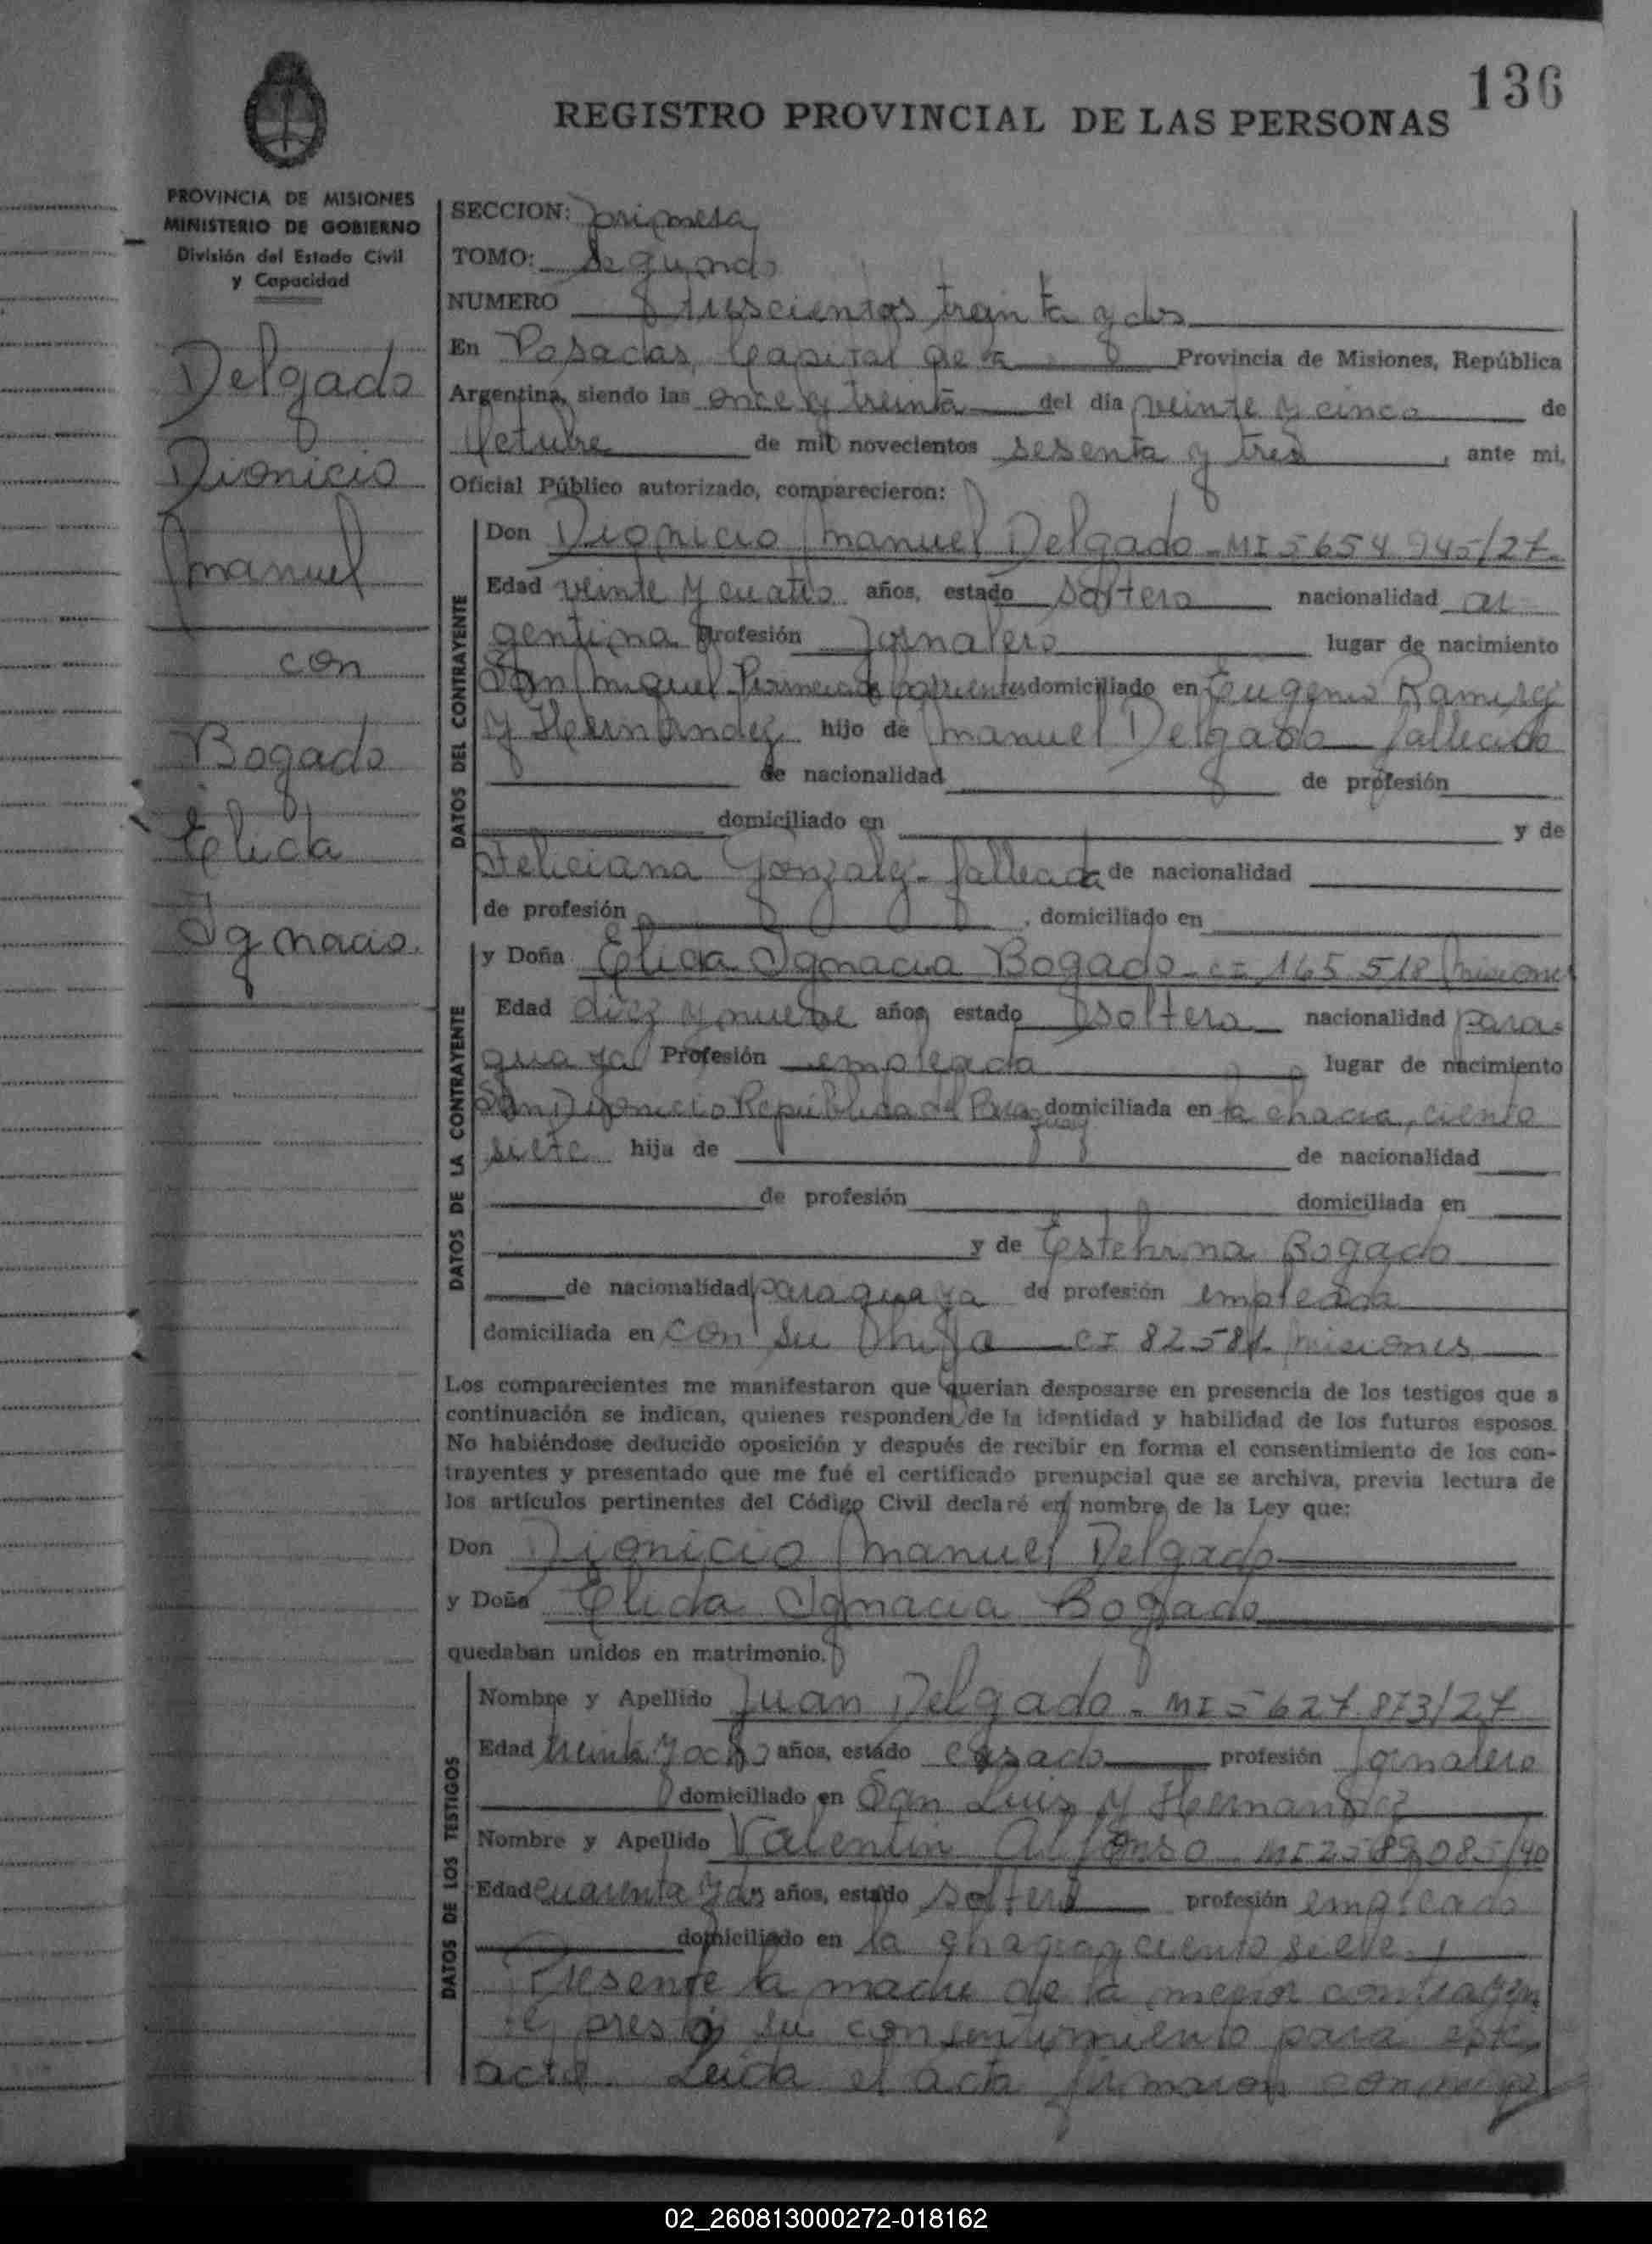 136
REGISTRO PROVINCIAL DE LAS PERSONAS
PROVINCIA DE MISIONES
MINISTERIO DE GOBIERNO
División del Estado Civil
y Capacidad
Delgado
Dionicio
Manuel
con
Bogado
Elida
Ignacia.
SECCION: primera
TOMO: Segundo
NUMERO trescientos treinta y dos
En Posadas, Capital de la Provincia de Misiones, República
Argentina, siendo las once y treinta del día veinte y cinco de
Octubre de mil novecientos sesenta y tres, ante mi,
Oficial Público autorizado, comparecieron:
DATOS DEL CONTRAYENTE
Don Dionicio Manuel Delgado - MI 5654945/27-
Edad veinte y cuatro años, estado soltero nacionalidad ar
gentina Profesión Jornalero lugar de nacimiento
San Miguel Provincia de Corrientes domiciliado en Eugenio Ramirez
y Hernandez hijo de Manuel Delgado fallecido
de nacionalidad de profesión
domiciliado en y de
Feliciana Gonzalez - fallecida de nacionalidad
de profesión, domiciliado en
DATOS DE LA CONTRAYENTE
y Doña Elida Ignacia Bogado - CI 165518 Misiones
Edad diez y nueve años, estado soltera nacionalidad para-
guaya Profesión empleada lugar de nacimiento
San Dionicio Republica del Paraguay domiciliada en la chacra, ciento
siete hija de de nacionalidad
de profesión domiciliada en
y de Bogado
de nacionalidad paraguaya de profesión empleada
domiciliada en con su hija CI 82581 Misiones
Los comparecientes me manifestaron que querían desposarse en presencia de los testigos que a
continuación se indican, quienes responden de la identidad y habilidad de los futuros esposos.
No habiéndose deducido oposición y después de recibir en forma el consentimiento de los con-
trayentes y presentado que me fué el certificado prenupcial que se archiva, previa lectura de
los artículos pertinentes del Código Civil declaré en nombre de la Ley que:
Don Dionicio Manuel Delgado
y Doña Elida Ignacia Bogado
quedaban unidos en matrimonio.
DATOS DE LOS TESTIGOS
Nombre y Apellido Juan Delgado - MI 5627873/27
Edad treinta y ocho años, estado casado profesión Jornalero
domiciliado en San Luis y Hernandez
Nombre y Apellido Valentin Alfonso MI 2589085/40
Edad cuarenta y dos años, estado soltero profesión empleado
domiciliado en la chacra ciento siete
Presente la madre de la menor contrayen
te presto su consentimiento para este
acto. Leida el acta firmaron conmigo
02_260813000272-018162